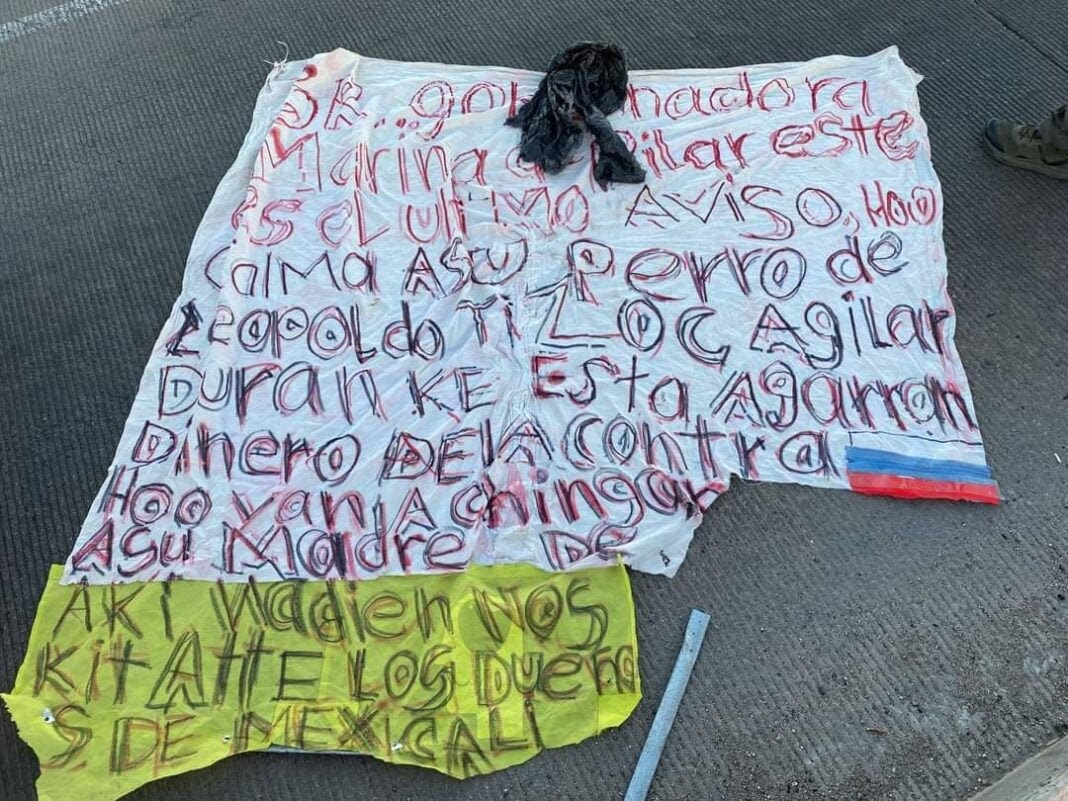 SR. gobernadora
Marina de Pilar este
es eL ultiMO AViSO, HOO
CalMa ASU Perro de
LEOPOLdo TiZOC Agilar
DURan KE Esta Agarran
Dinero DELA Contra
HOO Van A chingar
ASU Madre DE
AKI Nadien NOS
Kit A Atte LOS Dueño
S DE MEXiCALi